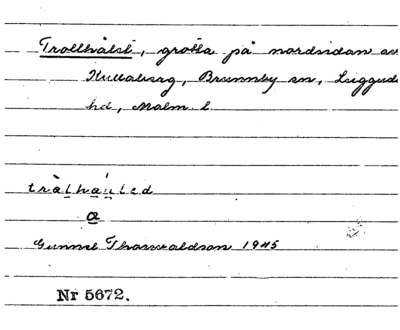 Trollhålet, grotta på nordsidan av
Kullaberg, Brunnby sn, Luggude
hd, Malm. l
Gunnel Thorwaldson 1945
Nr 5672.